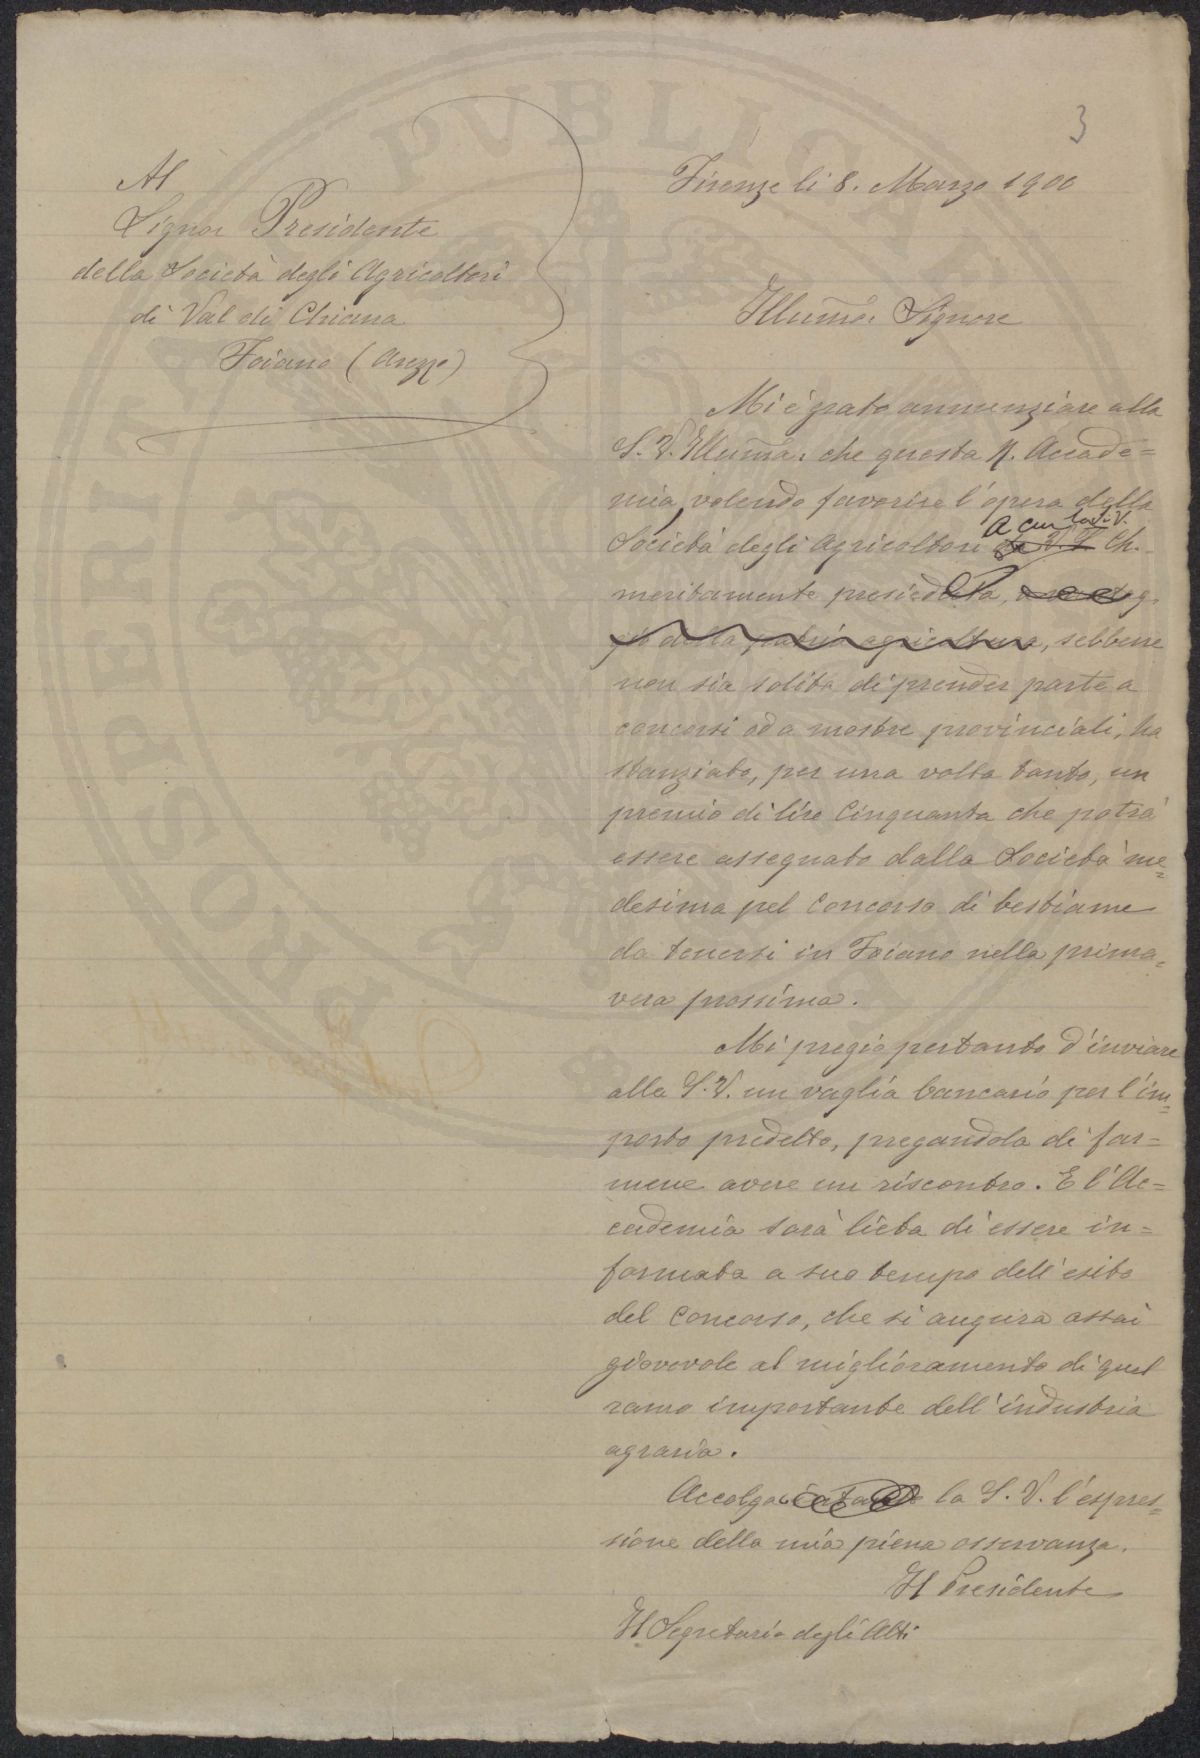 3
Al
Signor Presidente
della Società degli Agricoltori
di Val di Chiana
Foiano (Arezzo)
Firenze li 8. Marzo 1900
Illumo. Signore
Mi è grato annunziare alla
S. V. Illuma. che questa R. Accade=
mia, volendo favorire l'opera della
Società degli Agricoltori a cui la S. V. Ch.
meritamente presiede,
gio della patria agricoltura, sebbene
non sia solita di prender parte a
concorsi od a mostre provinciali, ha
stanziato, per una volta tanto, un
premio di lire Cinquanta che potrà
essere assegnato dalla Società me=
desima pel Concorso di bestiame
da tenersi in Foiano nella prima=
vera prossima.
Mi pregio pertanto d'inviare
alla S. V. un vaglia bancario per l'im=
porto predetto, pregandola di far=
mene avere un riscontro. E l'Ac=
cademia sarà lieta di essere in=
formata a suo tempo dell'esito
del Concorso, che si augura assai
giovevole al miglioramento di quel
ramo importante dell'industria
agraria.
Accolga la S. V. l'espres=
sione della mia piena osservanza.
Il Presidente
Il Segretario degli Atti
PVBLICA
PROSPERITÀ